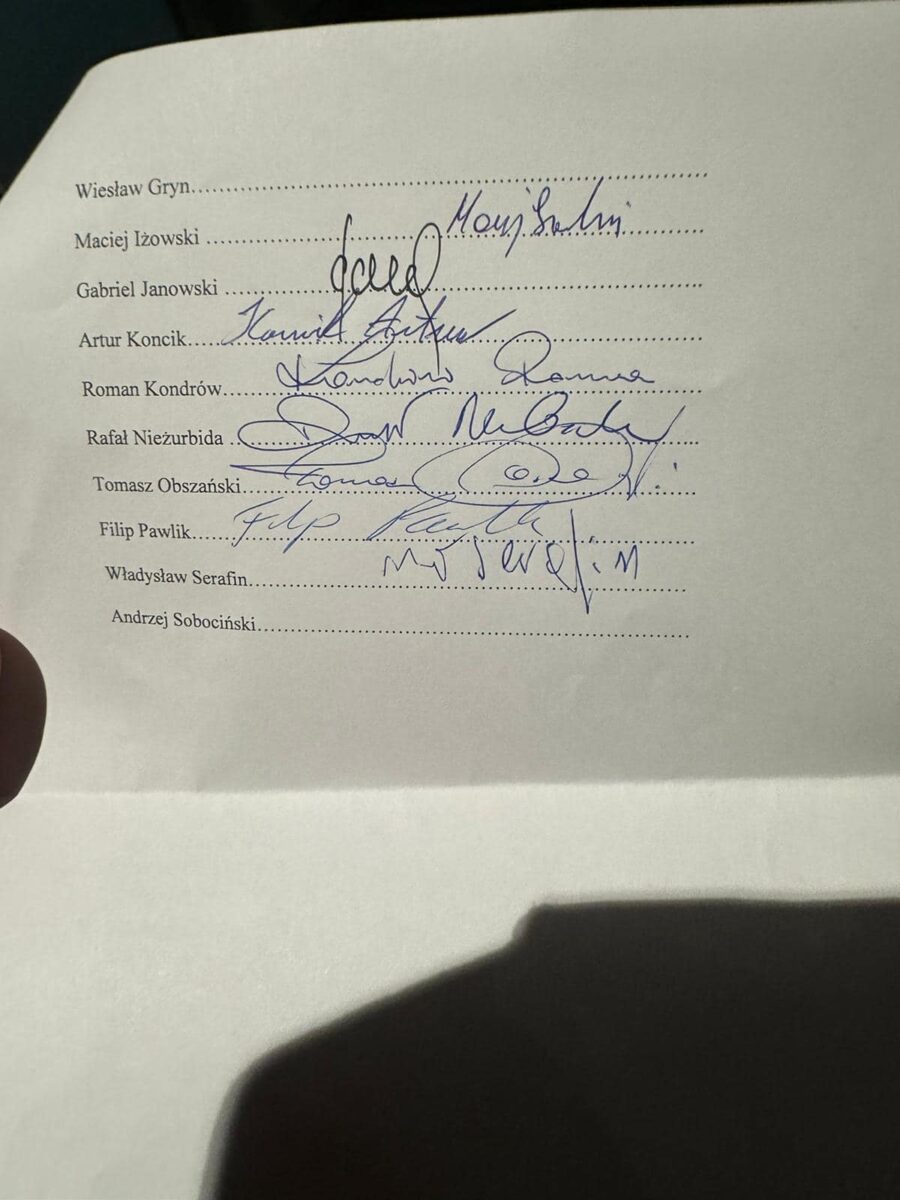 Wiesław Gryn................................................
Maciej Iżowski ................................................
Gabriel Janowski ................................................
Artur Koncik..... Koncik Artur ................................................
Roman Kondrów..... Kondrów Roman ................................................
Rafał Nieżurbida ................................................
Tomasz Obszański..... Tomasz ................................................
Filip Pawlik..... Filip Pawlik ................................................
Władysław Serafin..... Serafin ................................................
Andrzej Sobociński................................................